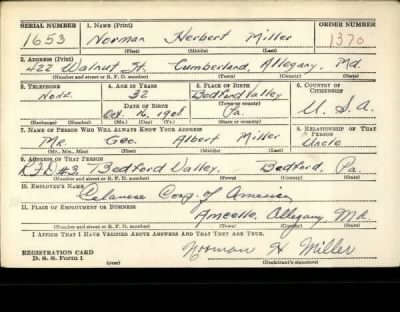 SERIAL NUMBER 1. NAME (Print) ORDER NUMBER
1653 Norman Herbert Miller 1370
(First) (Middle) (Last)
2. ADDRESS (Print)
422 Walnut St. Cumberland, Allegany, Md.
(Number and street or R. F. D. number) (Town) (County) (State)
3. TELEPHONE 4. AGE IN YEARS 5. PLACE OF BIRTH 6. COUNTRY OF CITIZENSHIP
None. 32 Bedford Valley
DATE OF BIRTH (Town or county)
Oct. 16, 1908 Pa. U. S. A.
(Exchange) (Number) (Mo.) (Day) (Yr.) (State or country)
7. NAME OF PERSON WHO WILL ALWAYS KNOW YOUR ADDRESS 8. RELATIONSHIP OF THAT PERSON
Mr. Geo. Albert Miller Uncle
(Mr., Mrs., Miss) (First) (Middle) (Last)
9. ADDRESS OF THAT PERSON
R.F.D. #3. Bedford Valley Bedford, Pa.
(Number and street or R. F. D. number) (Town) (County) (State)
10. EMPLOYER'S NAME
Celanese Corp. of America
11. PLACE OF EMPLOYMENT OR BUSINESS
Amcelle, Allegany, Md.
(Number and street or R. F. D. number) (Town) (County) (State)
I AFFIRM THAT I HAVE VERIFIED ABOVE ANSWERS AND THAT THEY ARE TRUE.
REGISTRATION CARD Norman H Miller
D. S. S. Form 1 (over) (Registrant's signature)